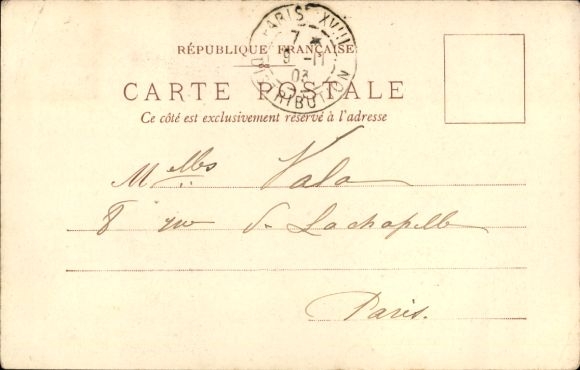 PARIS XVIII
7 *
9 -11
03
DISTRIBUTION
RÉPUBLIQUE FRANÇAISE
CARTE POSTALE
Ce côté est exclusivement réservé à l'adresse
Melles Vala
8 rue de Lachapelle
Paris.